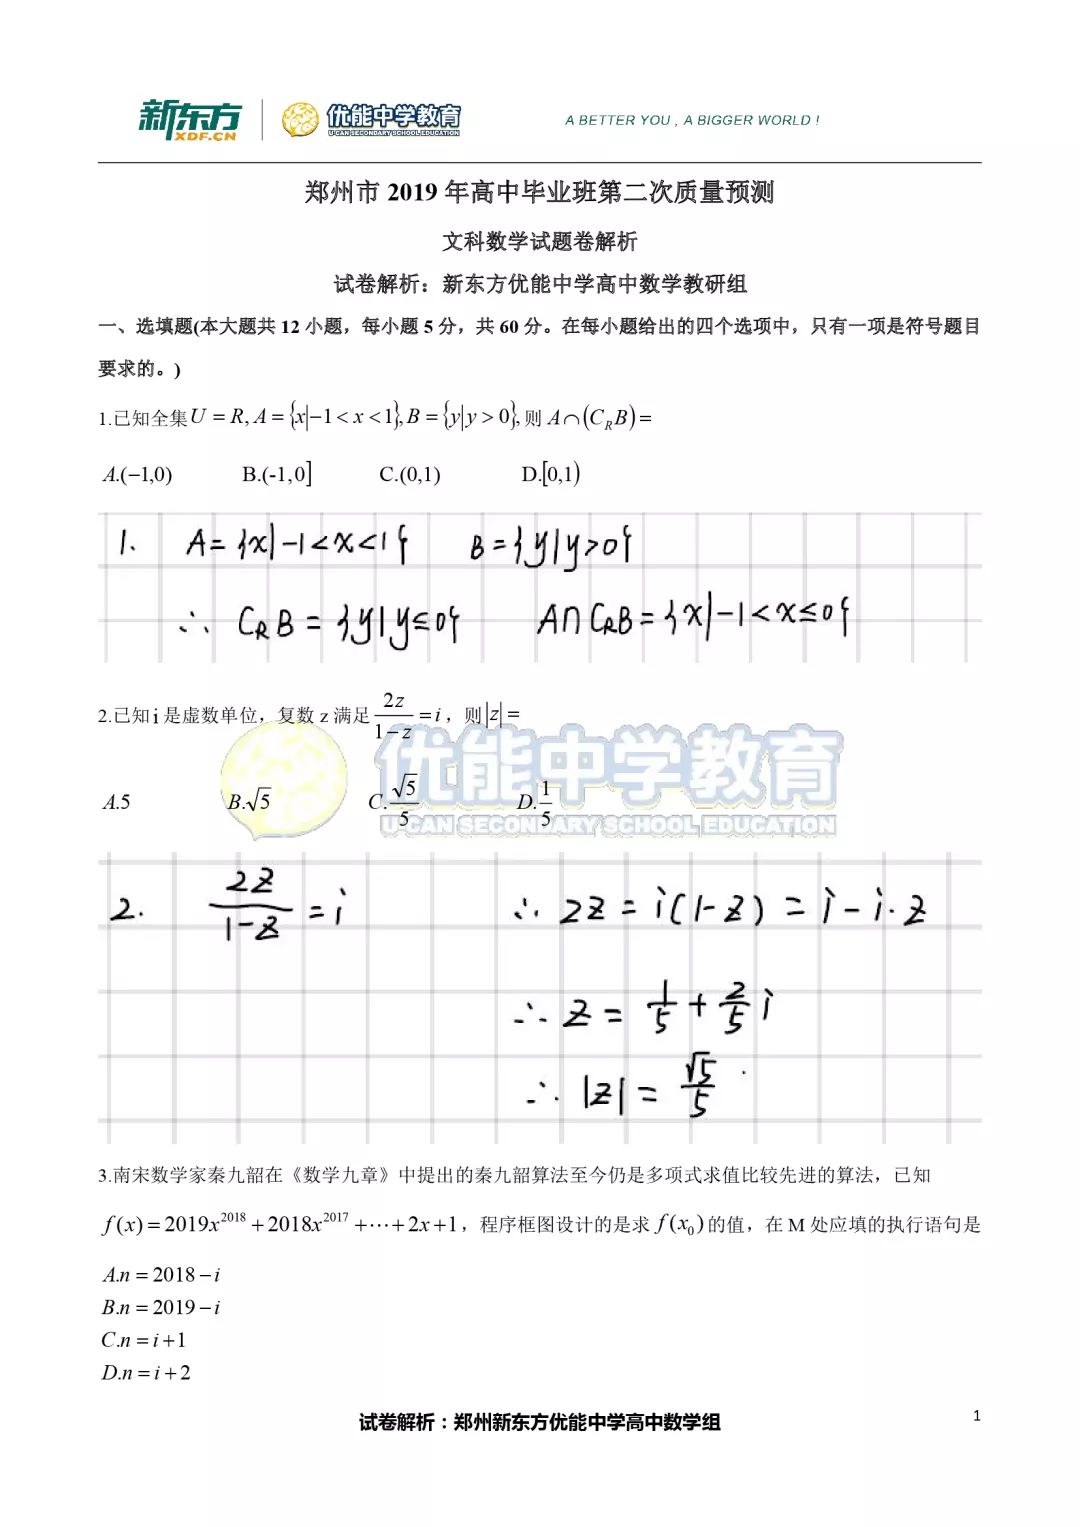 新东方 XDF.CN 优能中学教育 U-CAN SECONDARY SCHOOL EDUCATION A BETTER YOU , A BIGGER WORLD !
郑州市 2019 年高中毕业班第二次质量预测
文科数学试题卷解析
试卷解析：新东方优能中学高中数学教研组
一、选填题(本大题共 12 小题，每小题 5 分，共 60 分。在每小题给出的四个选项中，只有一项是符号题目
要求的。)
1.已知全集 U = R, A = {x|−1 < x < 1}, B = {y|y > 0}, 则 A∩(C_R B) =
A.(−1,0) B.(-1,0] C.(0,1) D.[0,1)
1. A={x|-1<x<1} B={y|y>0}
∴ C_R B = {y|y≤0} A∩C_R B={x|-1<x≤0}
2.已知 i 是虚数单位，复数 z 满足 2z/(1−z) = i，则 |z| =
优能中学教育
A.5 B.√5 C.√5/5 D.1/5
U-CAN SECONDARY SCHOOL EDUCATION
2. 2z/(1-z) = i ∴ 2z = i(1-z) = i - i·z
∴ z = 1/5 + 2/5 i
∴ |z| = √5/5
3.南宋数学家秦九韶在《数学九章》中提出的秦九韶算法至今仍是多项式求值比较先进的算法，已知
f(x) = 2019x^2018 + 2018x^2017 + ··· + 2x + 1，程序框图设计的是求 f(x_0) 的值，在 M 处应填的执行语句是
A.n = 2018 − i
B.n = 2019 − i
C.n = i + 1
D.n = i + 2
试卷解析：郑州新东方优能中学高中数学组
1